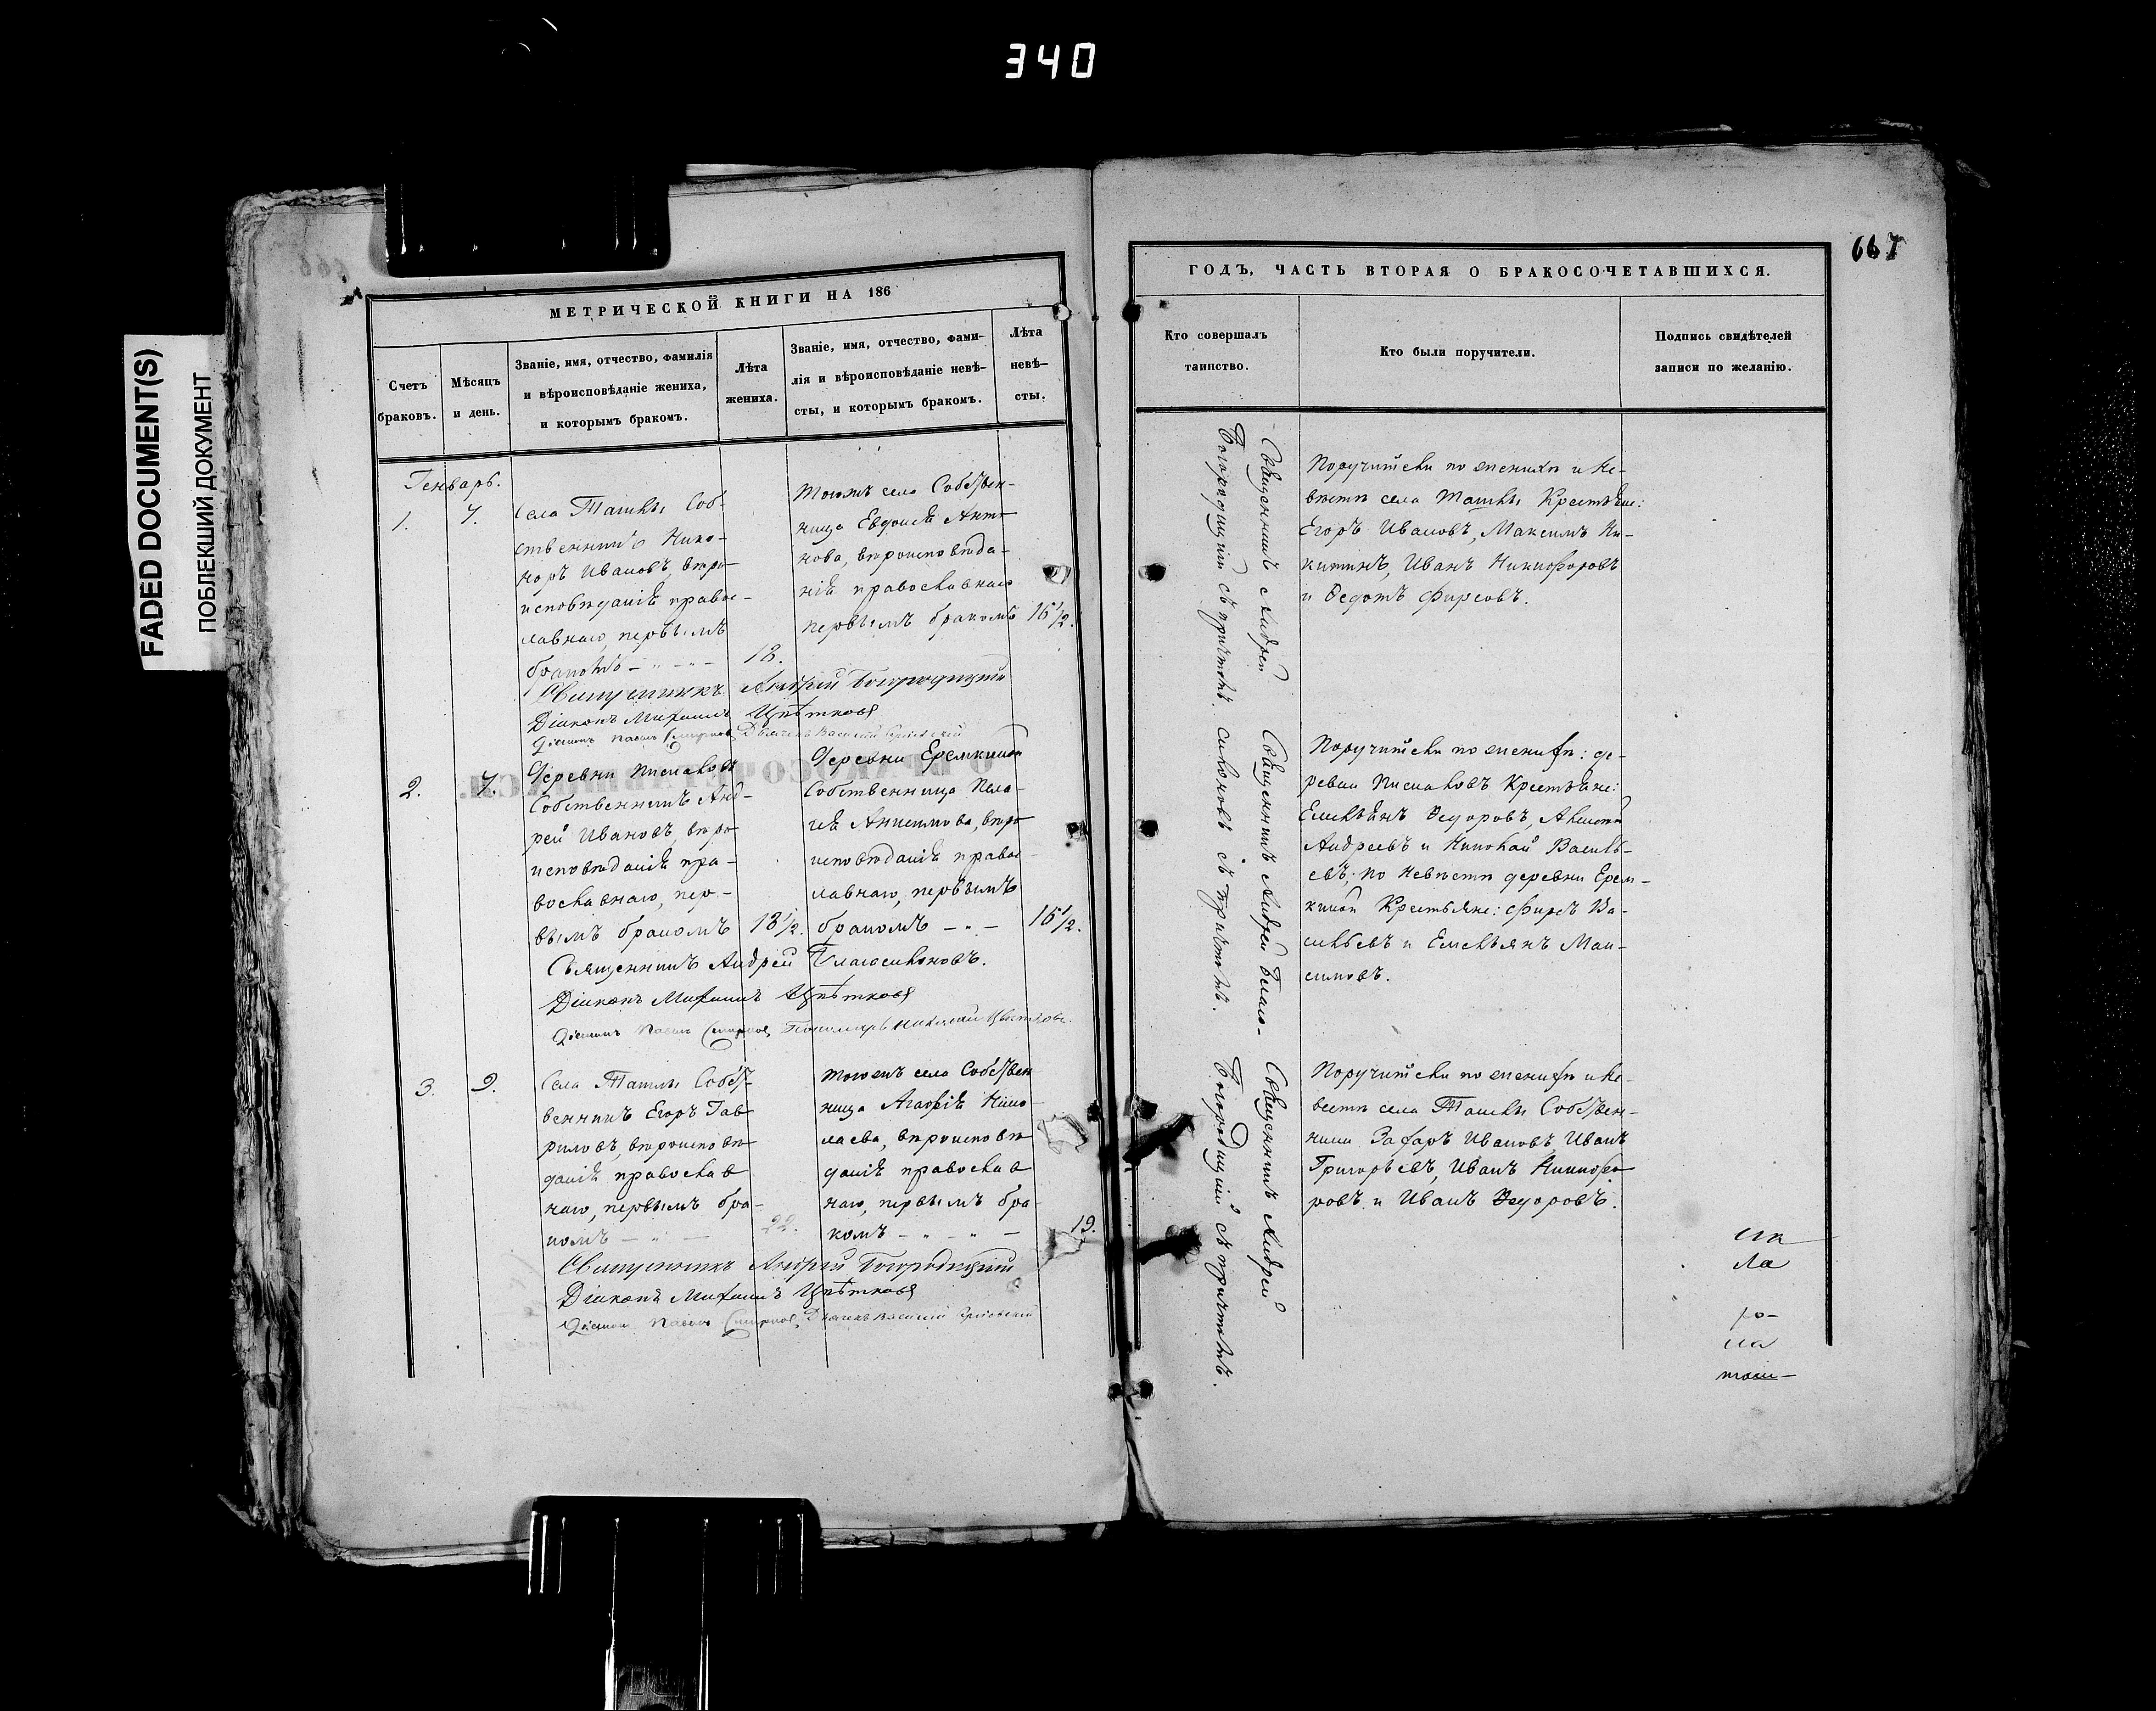 340
667
FADED DOCUMENT(S)
ПОБЛЕКШИЙ ДОКУМЕНТ
МЕТРИЧЕСКОЙ КНИГИ НА 186
Счетъ
браковъ.
Мѣсяцъ
и день.
Званіе, имя, отчество, фамилія
и вѣроисповѣданіе жениха,
и которымъ бракомъ.
Лѣта
жениха.
Званіе, имя, отчество, фами-
лія и вѣроисповѣданіе невѣ-
сты, и которымъ бракомъ.
Лѣта
невѣ-
сты.
Генварь.
1.
7.
Села Ташлы Соб-
ственникъ Ника-
норъ Ивановъ, вѣро-
исповѣданія правос-
лавнаго, первымъ
бракомъ
18.
Тогожъ села Собствен-
ница Евдокія Анто-
нова, вѣроисповѣда-
нія православнаго
первымъ бракомъ
16 1/2.
Священникъ Андрей Богородицкій
Діаконъ Михаилъ Цвѣтковъ
Діаконъ Павелъ Смирновъ, Дьячекъ Василій
2.
7.
Деревни Писцаловъ
Собственникъ Анд-
рей Ивановъ, вѣро-
исповѣданія пра-
вославнаго, пер-
вымъ бракомъ
18 1/2.
Деревни Еремкиной
Собственница Пела-
гія Анисимова, вѣро-
исповѣданія правос-
лавнаго, первымъ
бракомъ
16 1/2.
Священникъ Андрей Благосклоновъ.
Діаконъ Михаилъ Цвѣтковъ
Діаконъ Павелъ Смирновъ, Пономарь Николай Цвѣтковъ.
3.
9.
Села Ташлы Собст-
венникъ Егоръ Гав-
риловъ, вѣроисповѣ-
данія православ-
наго, первымъ бра-
комъ
22.
Тогожъ села Собствен-
ница Агафія Нико-
лаева, вѣроисповѣ-
данія православ-
наго, первымъ бра-
комъ
19.
Священникъ Андрей Богородицкій
Діаконъ Михаилъ Цвѣтковъ
Діаконъ Павелъ Смирновъ, Дьячекъ Василій
ГОДЪ, ЧАСТЬ ВТОРАЯ О БРАКОСОЧЕТАВШИХСЯ.
Кто совершалъ
таинство.
Кто были поручители.
Подпись свидѣтелей
записи по желанію.
Священникъ Андрей
Богородицкій съ причтомъ.
Поручители по женихѣ и не-
вѣстѣ села Ташлы Крестьяне:
Егоръ Ивановъ, Максимъ Ни-
китинъ, Иванъ Никифоровъ
и Ѳедотъ Фирсовъ.
Священникъ Андрей Благо-
склоновъ съ причтомъ.
Поручители по женихѣ: де-
ревни Писцаловъ Крестьяне:
Емельянъ Ѳедоровъ, Алексѣй
Андреевъ и Николай Василь-
евъ; по невѣстѣ деревни Ерем-
киной Крестьяне: Фирсъ Ва-
сильевъ и Емельянъ Мак-
симовъ.
Священникъ Андрей
Богородицкій съ причтомъ.
Поручители по женихѣ и не-
вестѣ села Ташлы Собствен-
ники Захаръ Ивановъ Иванъ
Григорьевъ, Иванъ Никифо-
ровъ и Иванъ Ѳедоровъ.
ла
ро-
на